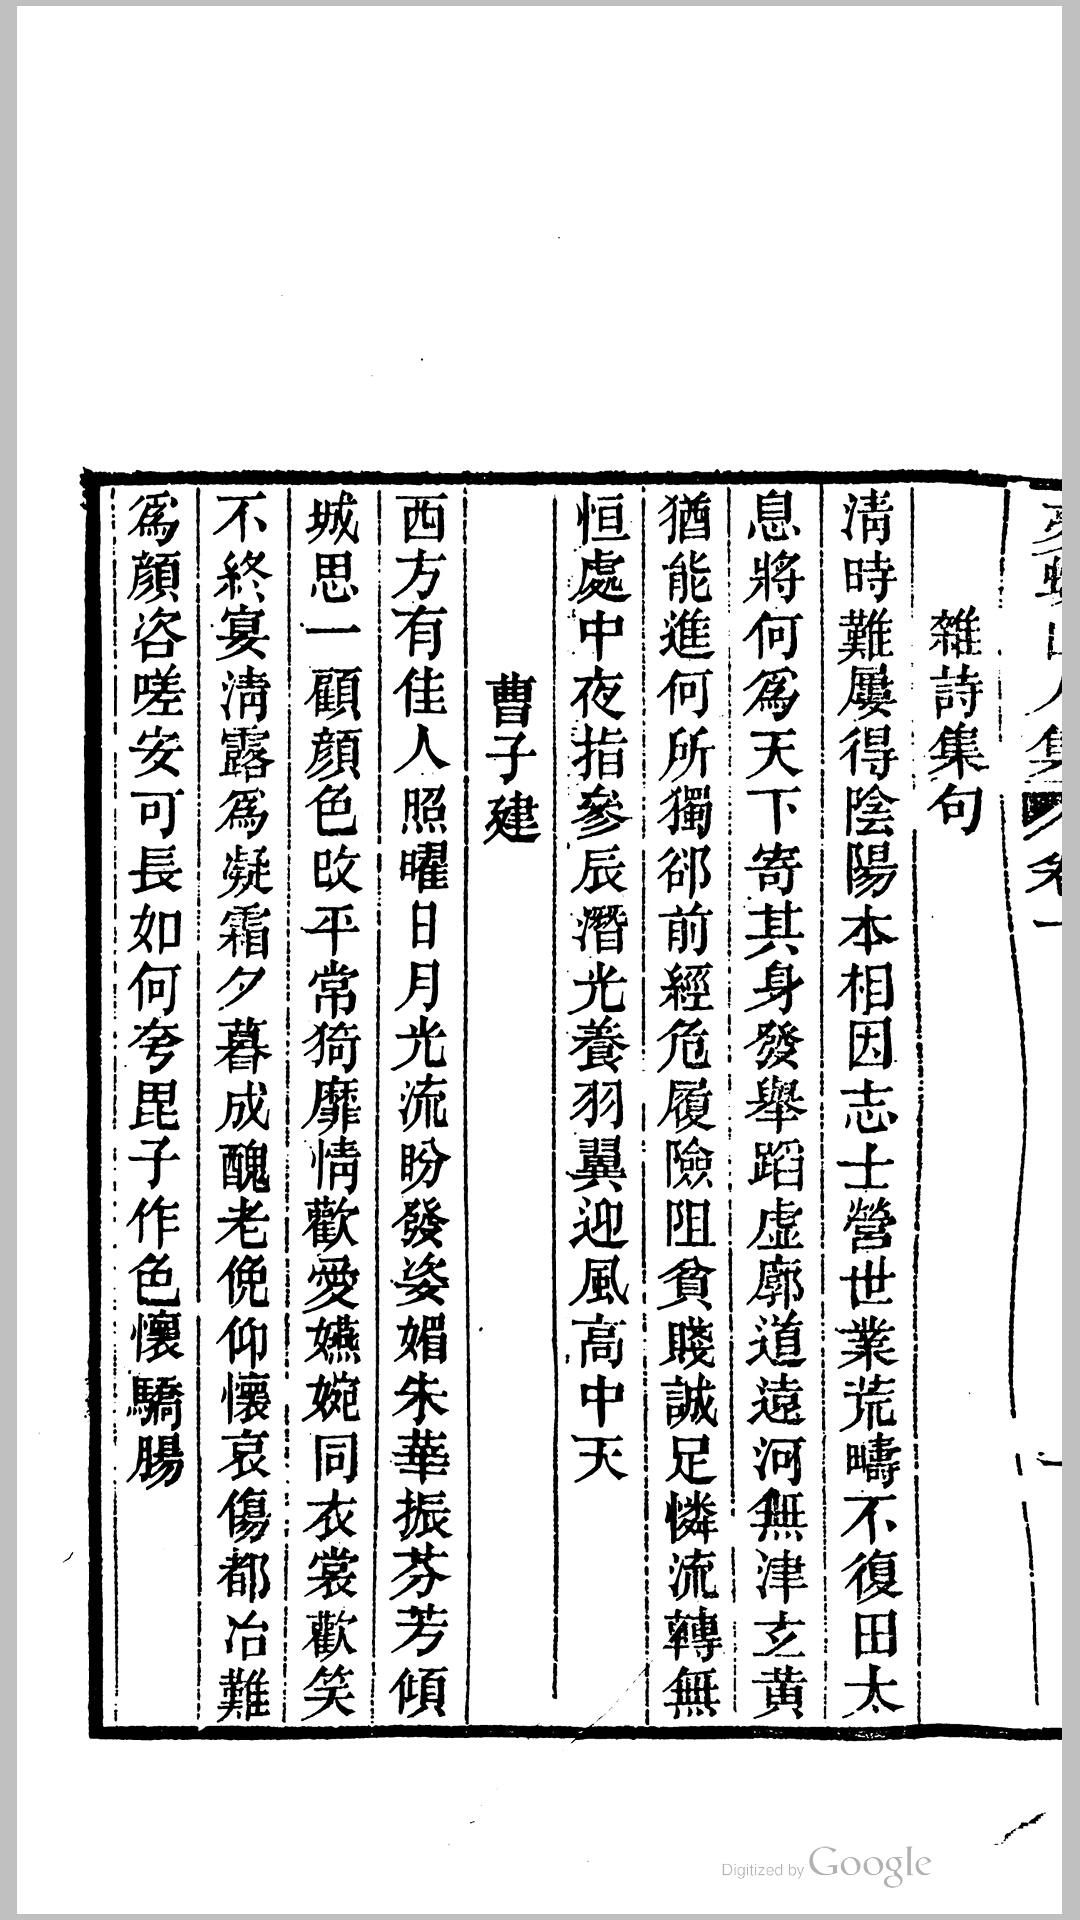 雜詩集句
清時難屢得陰陽本相因志士營世業荒疇不復田太
息將何爲天下寄其身發舉蹈虛廓道遠河無津玄黃
猶能進何所獨卻前經危履險阻貧賤誠足憐流轉無
恒處中夜指參辰潛光養羽翼迎風高中天
曹子建
西方有佳人照曜日月光流盼發姿媚朱華振芬芳傾
城思一顧顏色改平常猗靡情歡愛嬿婉同衣裳歡笑
不終宴清露爲凝霜夕暮成醜老俛仰懷哀傷都冶難
爲顏咨嗟安可長如何夸毘子作色懷驕腸
Digitized by Google